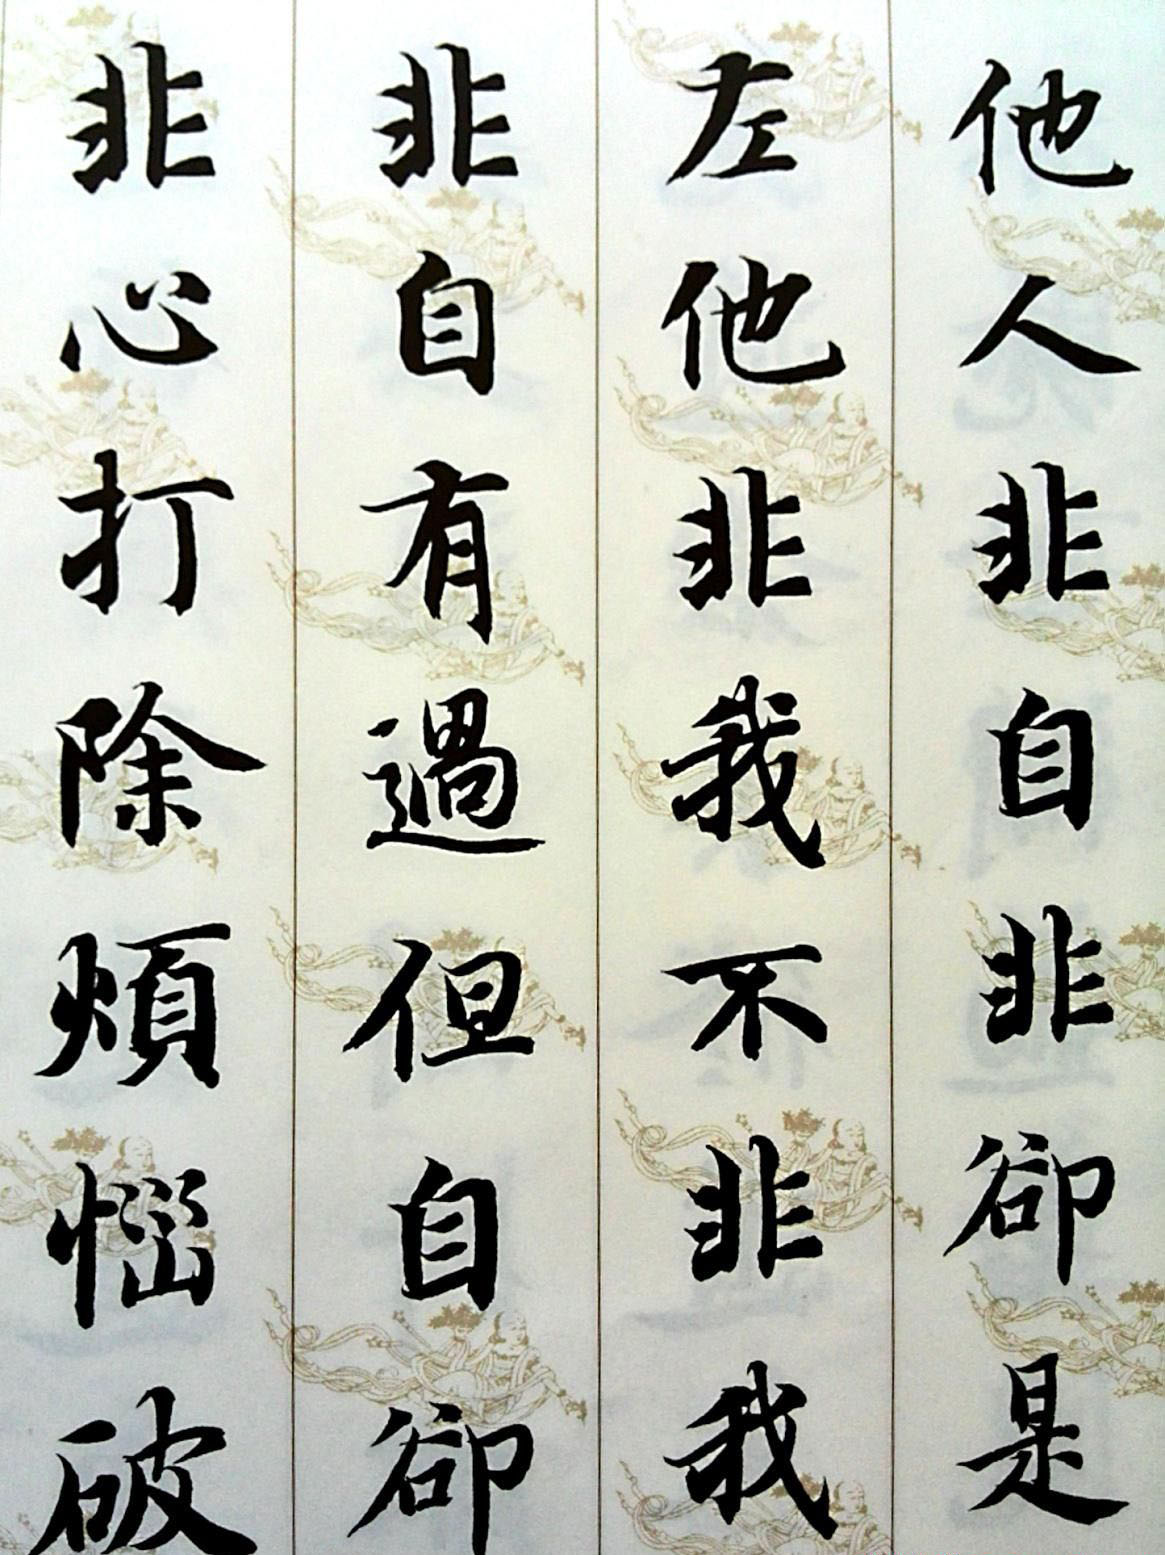 他人非自非卻是
左他非我不非我
非自有過但自卻
非心打除煩惱破